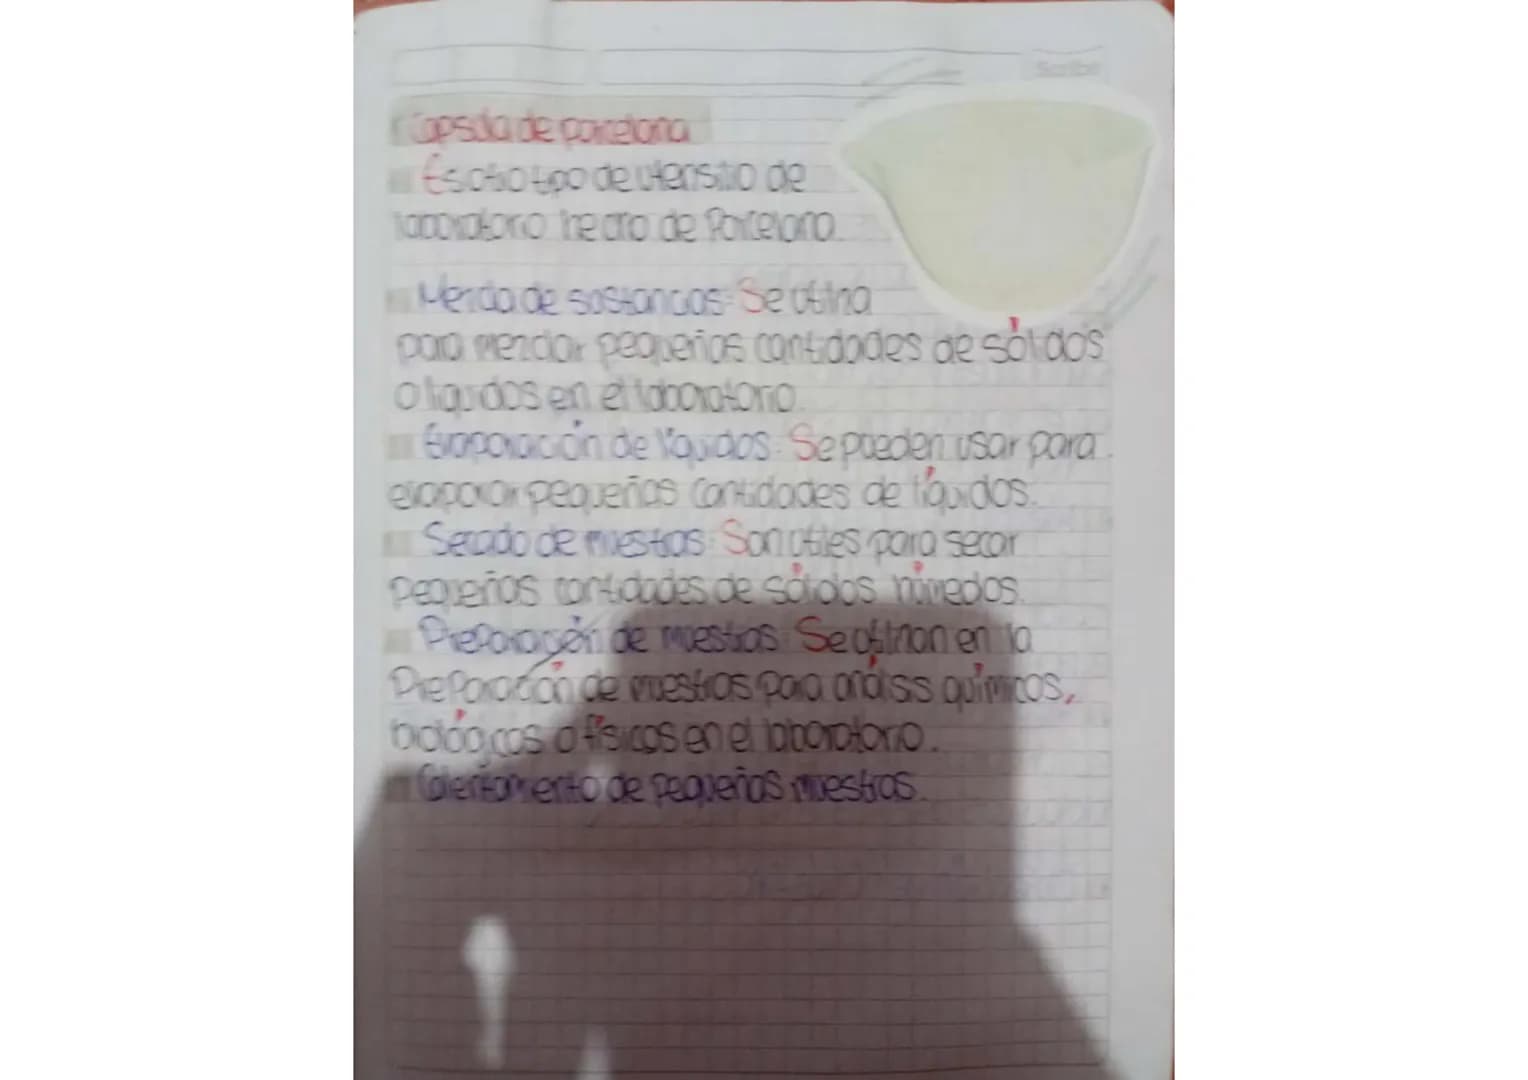 Scribe
Capsula de porcelana
Es otro tipo de utensilio de
laboratorio hecho de Porcelana.
Mezcla de sustancias: Se utiliza
para mezclar pequeñas cantidades de sólidos
o liquidos en el laboratorio.
Evaporación de líquidos: Se pueden usar para
evaporar pequeñas cantidades de líquidos.
Secado de muestras: Son utiles para secar
Pequeñas cantidades de sólidos húmedos.
Preparación de muestras: Se utilizan en la
Preparación de muestras para análisis químicos,
biológicos o físicos en el laboratorio.
Calentamiento de Pequeñas muestras.